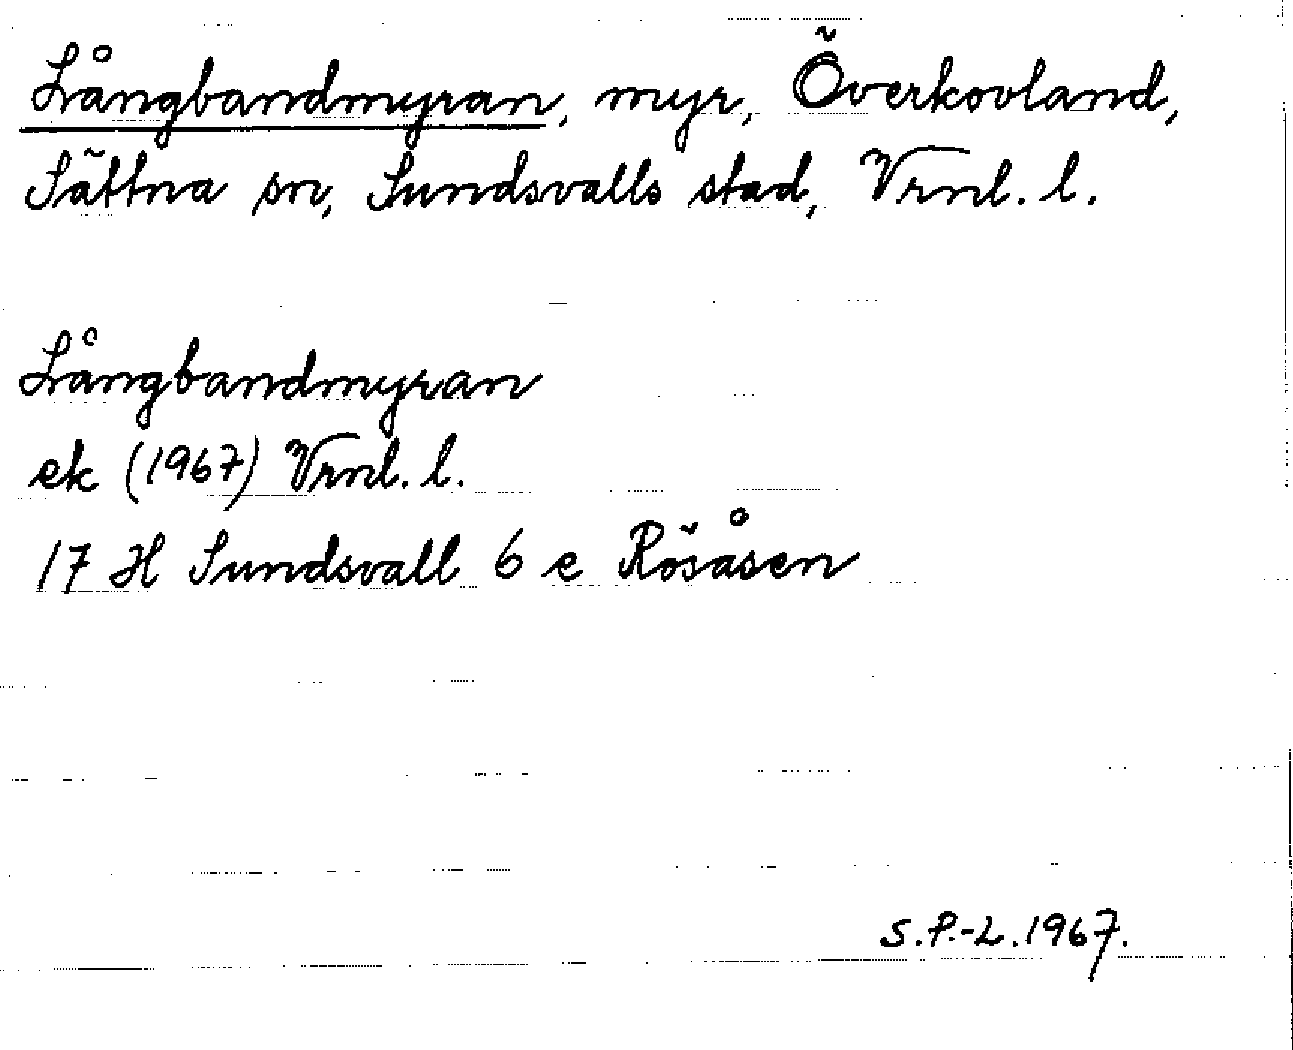 Långbandmyran, myr, Överkovland,
Sättna sn, Sundsvalls stad, Vrnl. l.
Långbandmyran
ek (1967) Vrnl. l.
17 H Sundsvall 6 e Rösåsen
S.P.-L. 1967.